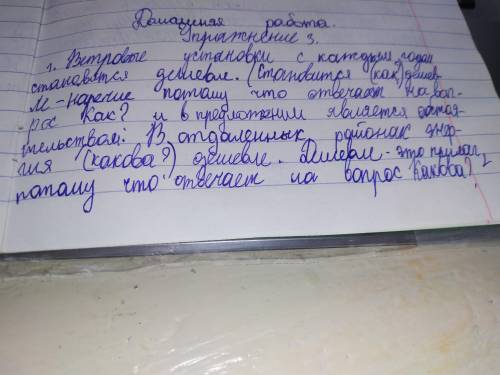 Домашняя работа.
Упражнение 3.
1. Витровые установки с каждым годом
становятся дешевле. (Становится (как) дешев-
ле - наречие потому что отвечает на воп-
рос как? и в предложении является обстоя-
тельством. В отдаленных районах энер-
гия (какова?) дешевле. Дешевле - это прилаг
потому что отвечает на вопрос какова?